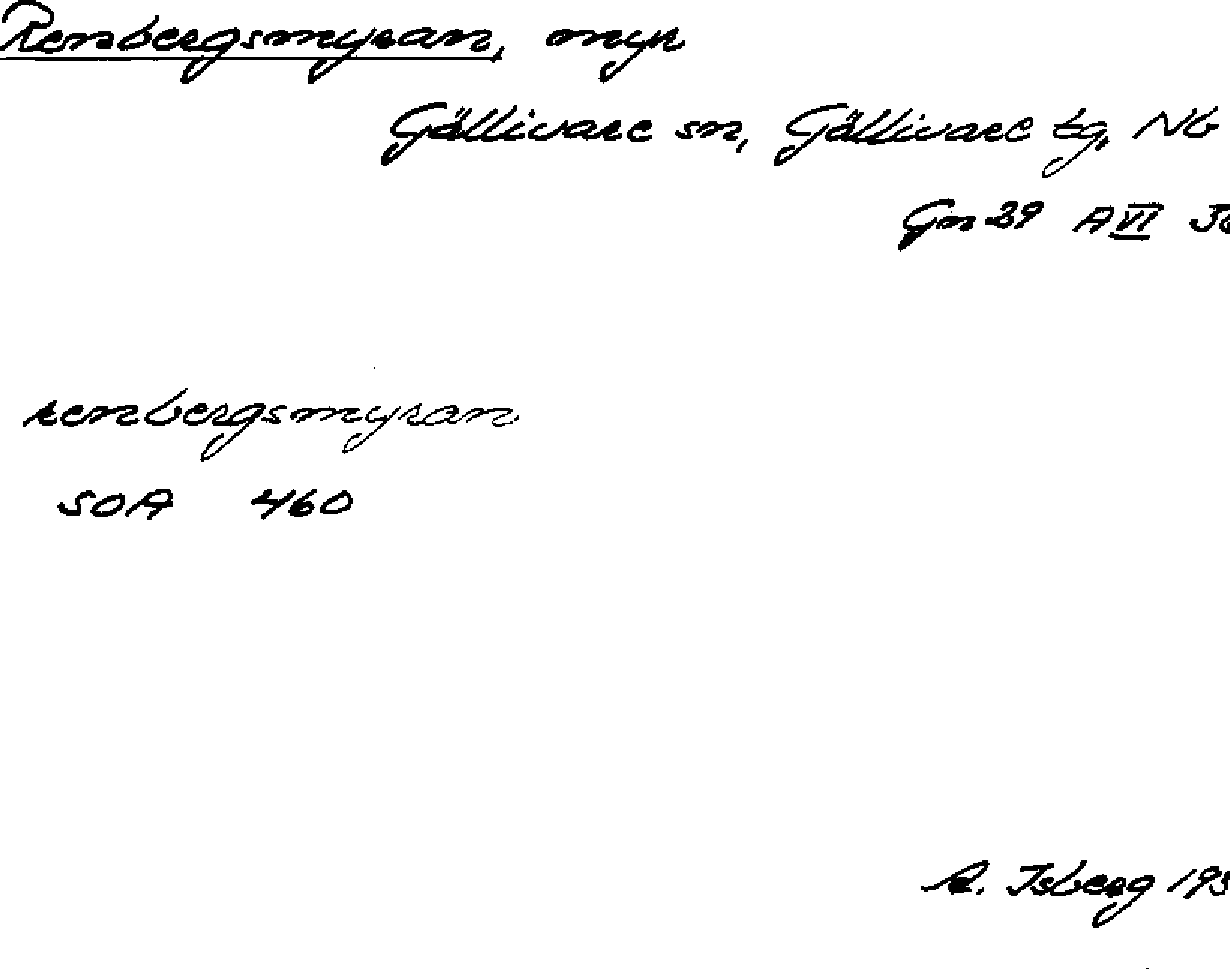 Renbergsmyran, myr
Gällivare sn, Gällivare tg, Nb
Gm 29 A VI
renbergsmyran
SOA 460
A. Isberg 195